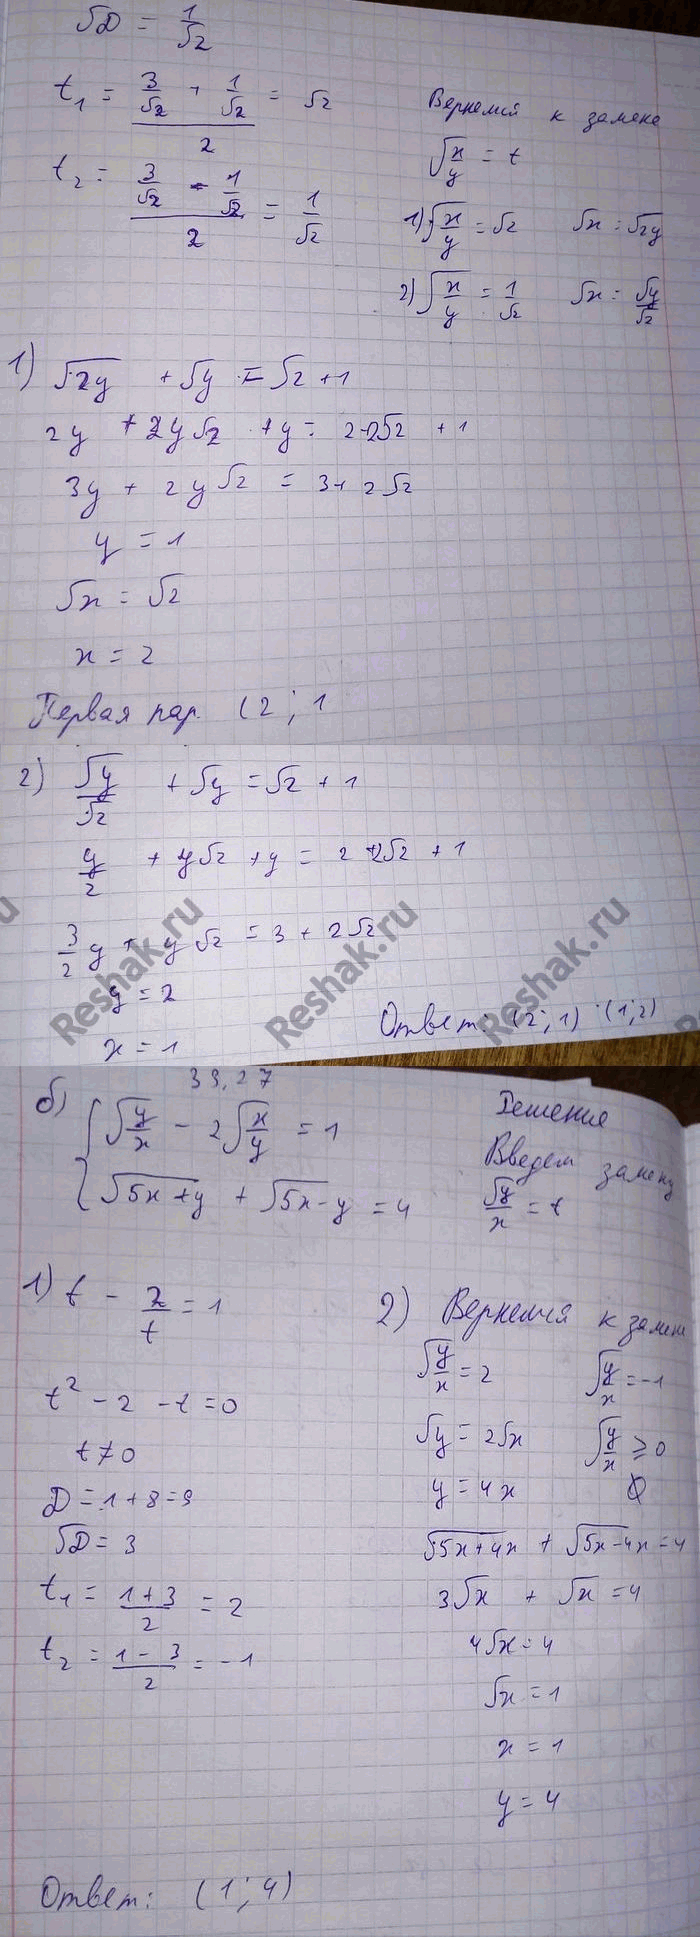 √D = 1/√2
t₁ = (3/√2 + 1/√2)/2 = √2
t₂ = (3/√2 - 1/√2)/2 = 1/√2
Вернемся к замене
√(x/y) = t
1) √(x/y) = √2 √x = √2y
2) √(x/y) = 1/√2 √x = √y/√2
1) √2y + √y = √2 + 1
2y + 2y√2 + y = 2+2√2 + 1
3y + 2y√2 = 3 + 2√2
y = 1
√x = √2
x = 2
Первая пар. (2; 1
2) √y/√2 + √y = √2 + 1
y/2 + y√2 + y = 2+2√2 + 1
3/2 y + y√2 = 3 + 2√2
y = 2
x = 1
Ответ: (2; 1) (1; 2)
Reshak.ru
Reshak.ru
Reshak.ru
39,27
б) { √(y/x) - 2√(x/y) = 1
√(5x+y) + √(5x-y) = 4
Решение
Введем замену
√y/x = t
1) t - 2/t = 1
t² - 2 - t = 0
t ≠ 0
D = 1 + 8 = 9
√D = 3
t₁ = (1+3)/2 = 2
t₂ = (1-3)/2 = -1
2) Вернемся к замене
√(y/x) = 2 √(y/x) = -1
√y = 2√x √(y/x) ≥ 0
y = 4x ∅
√(5x+4x) + √(5x-4x) = 4
3√x + √x = 4
4√x = 4
√x = 1
x = 1
y = 4
Ответ: (1; 4)